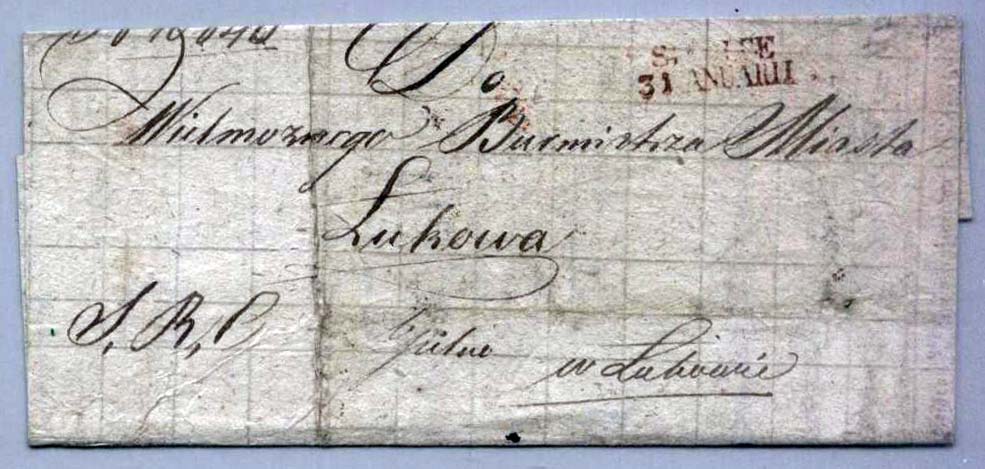 Do
31 IANUARII
Wielmoznego Burmistrza Miasta
Łukowa
S. R. P
Pilno
w Łukowie